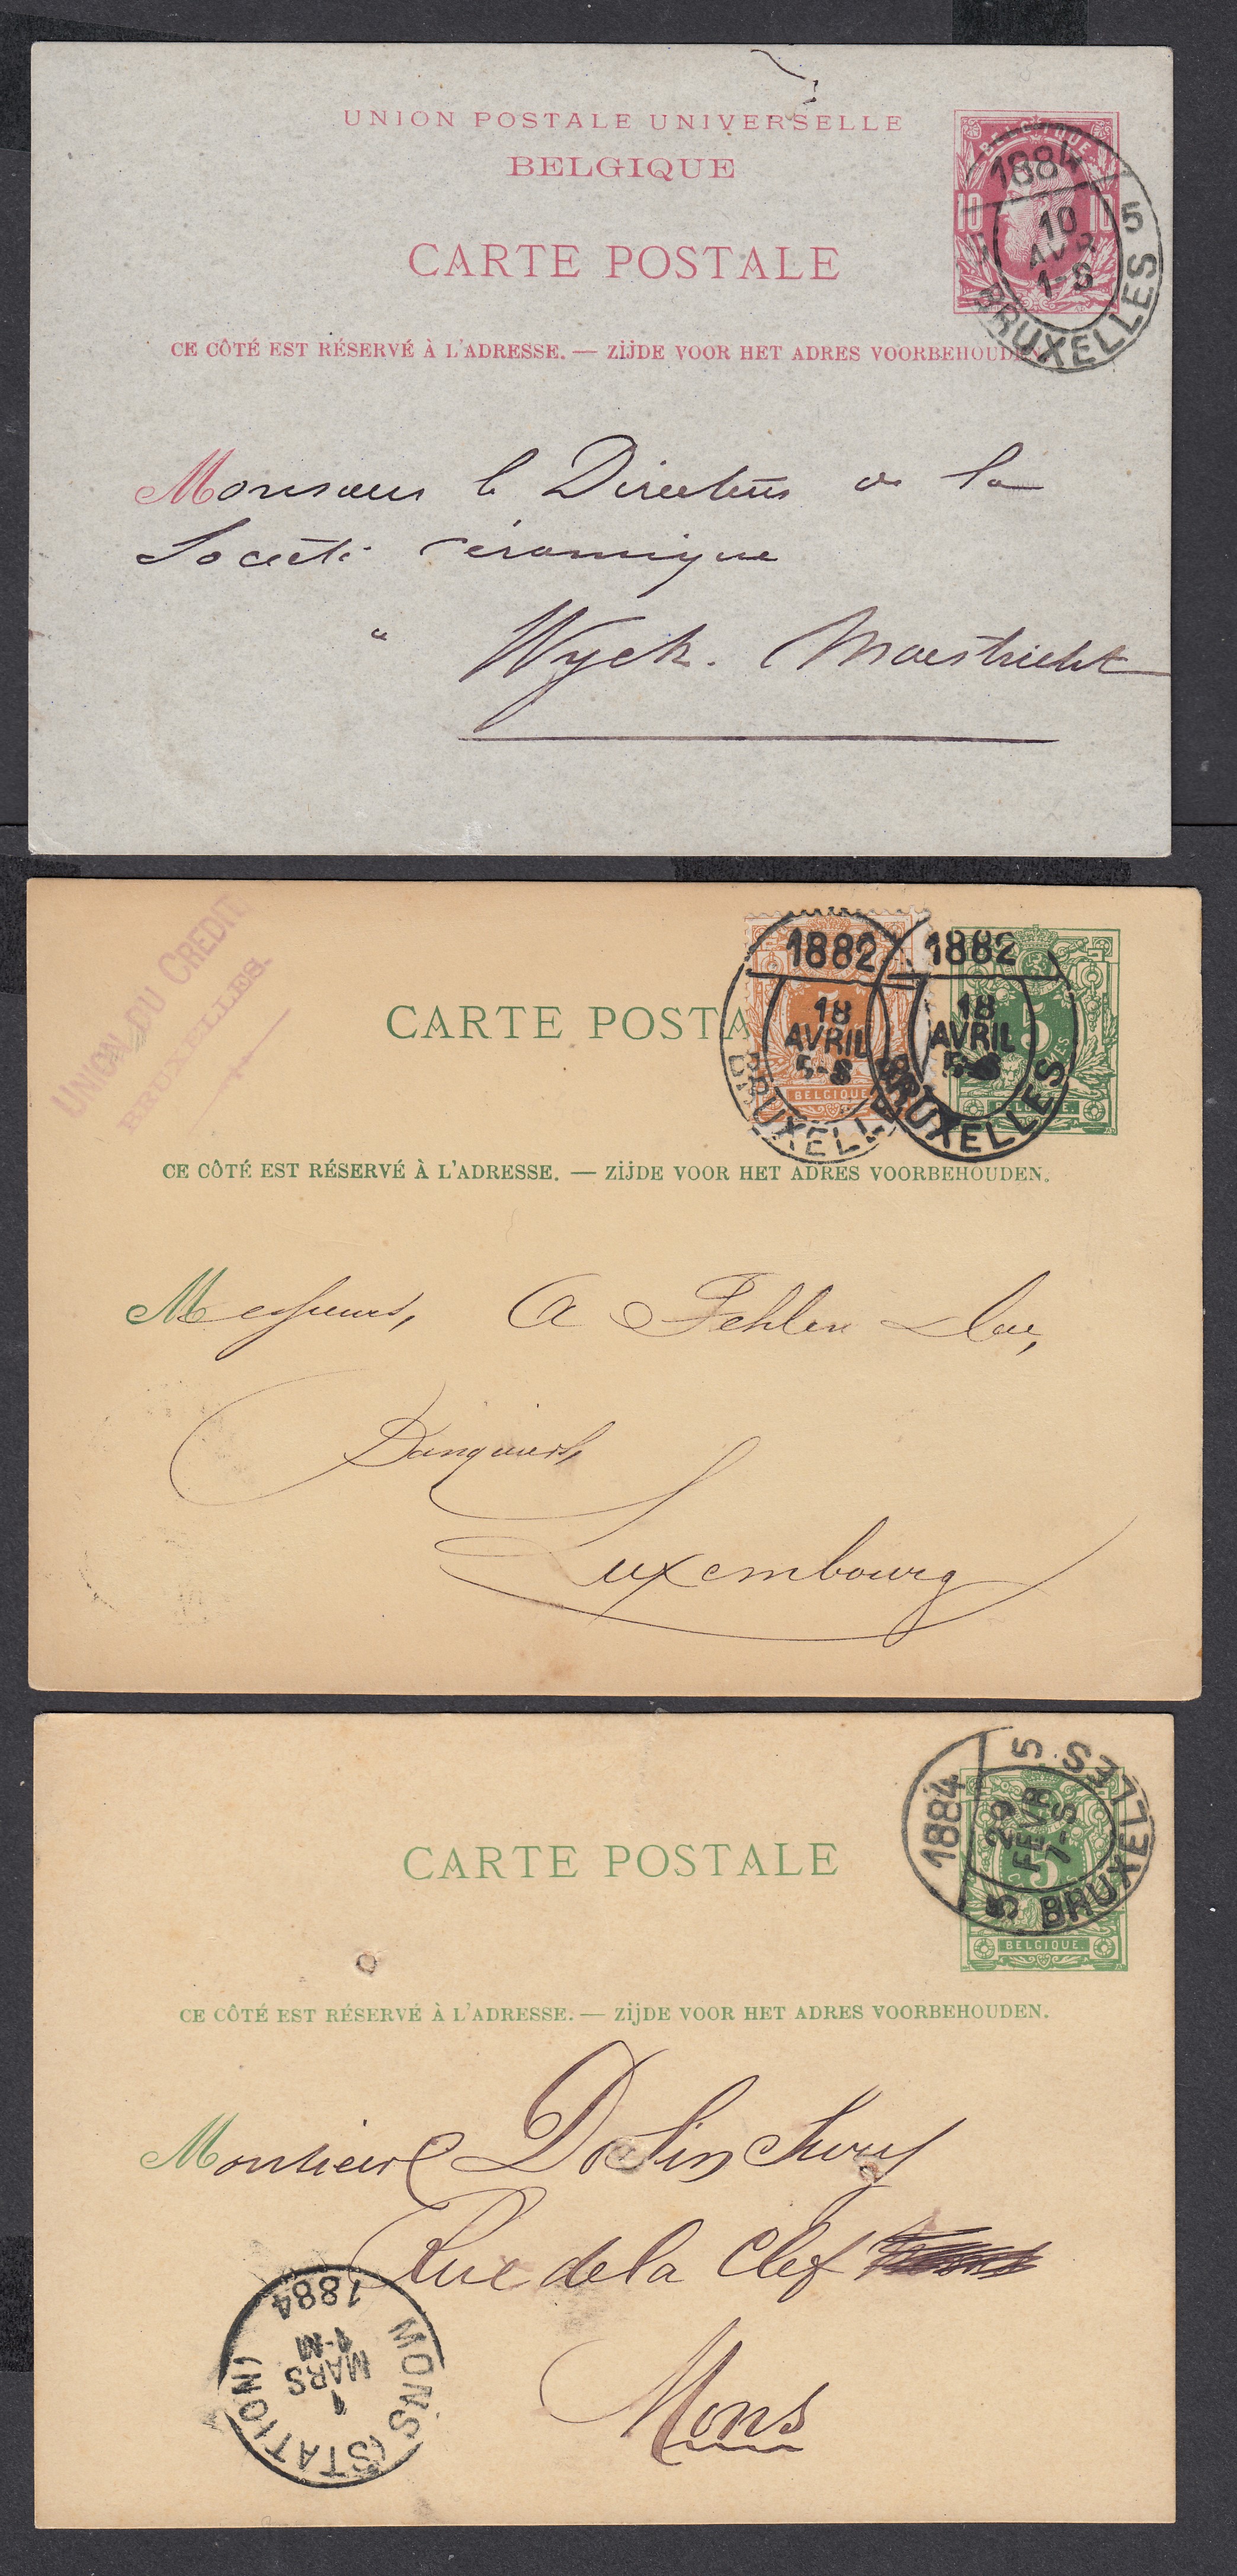 UNION POSTALE UNIVERSELLE
BELGIQUE
CARTE POSTALE
CE CÔTÉ EST RÉSERVÉ À L'ADRESSE. — ZIJDE VOOR HET ADRES VOORBEHOUDEN.
BELGIQUE
10 10
1884
10
AVR
1-S
5
BRUXELLES
Monsieur le Directeur de la
Société Céramique
à Wyck. Maestricht
UNION DU CREDIT
BRUXELLES.
CARTE POSTA
1882
18
AVRIL
5-S
BRUXELLES
BELGIQUE
1882
18
AVRIL
5-S
BRUXELLES
5
BELGIQUE.
CE CÔTÉ EST RÉSERVÉ À L'ADRESSE. — ZIJDE VOOR HET ADRES VOORBEHOUDEN.
Messieurs, A Fehlen
Banquiers,
Luxembourg
CARTE POSTALE
1884
29
FEVR
7-S
5 BRUXELLES 5
5
BELGIQUE.
CE CÔTÉ EST RÉSERVÉ À L'ADRESSE. — ZIJDE VOOR HET ADRES VOORBEHOUDEN.
Monsieur
Rue de la Clef
Mons
MONS (STATION)
1
MARS
1-M
1884